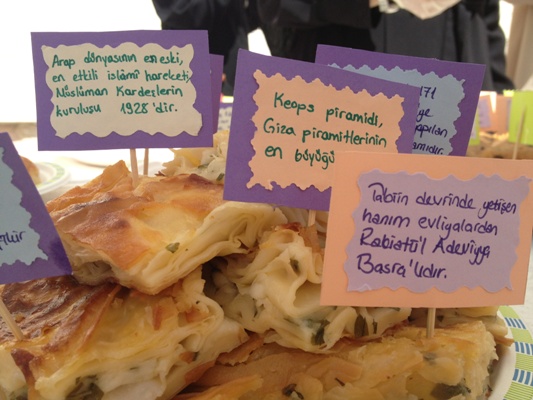 Arap dünyasının en eski,
en etkili islâmî hareketi,
Müslüman Kardeşlerin
kuruluşu 1928'dir.
Keops piramidi,
Giza piramitlerinin
en büyüğü
171
ye
yapılan
Tabiin devrinde yetişen
hanım evliyalardan
Rabiatü'l Adeviyya
Basra'lıdır.